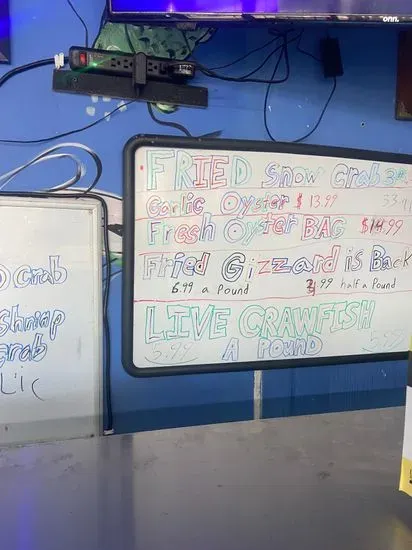 onn.
FRIED Snow Crab 3#
Garlic Oyster $ 13.99
Fresh Oyster BAG $14.99
Fried Gizzard is Back
6.99 a Pound
.99 half a Pound
LIVE CRAWFISH
A POUND
crab
Shrimp
crab